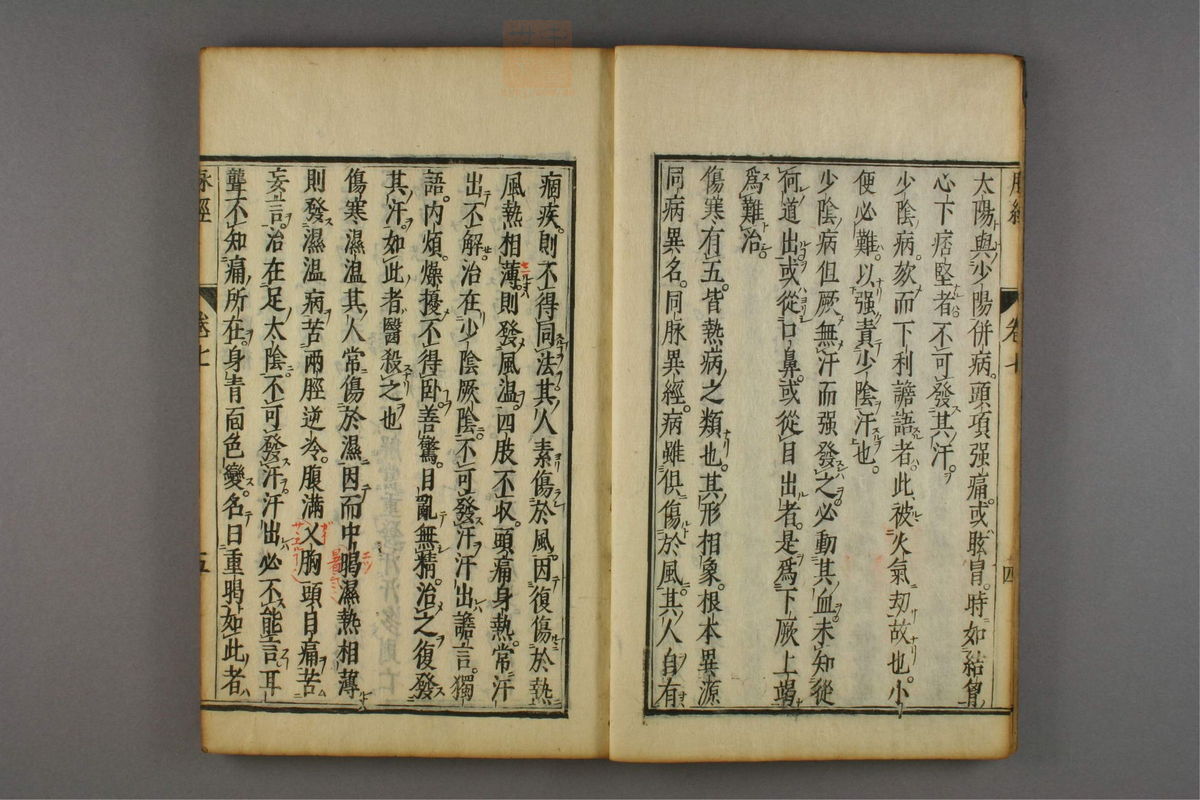 太陽與少陽併病。頭項强痛。或眩冒。時如結胷
心下痞堅者。不可發其汗。
少陰病。欬而下利讝語者。此被火氣劫故也。小
便必難。以强責少陰汗也。
少陰病但厥無汗而强發之。必動其血未知從
何道出或從口鼻。或從目出者。是爲下厥上竭
爲難治。
傷寒有五。皆熱病之類也。其形相象。根本異源
同病異名。同脉異經。病雖俱傷於風。其人自有
脉經
卷七
四
痼疾。則不得同法。其人素傷於風。因復傷於熱
風熱相薄。則發風温。四肢不収。頭痛身熱。常汗
出不解。治在少陰厥陰。不可發汗。汗出讝言。獨
語。内煩。燥擾不得卧。善驚。目亂無精。治之復發
其汗。如此者。醫殺之也
傷寒濕温其人常傷於濕因而中暍濕熱相薄
則發濕温病苦兩脛逆冷。腹滿乂胸。頭目痛苦
妄言。治在足太陰。不可發汗。汗出必不能言。耳
聾不知痛所在。身青面色變。名曰重暍如此者
脉經
卷七
五